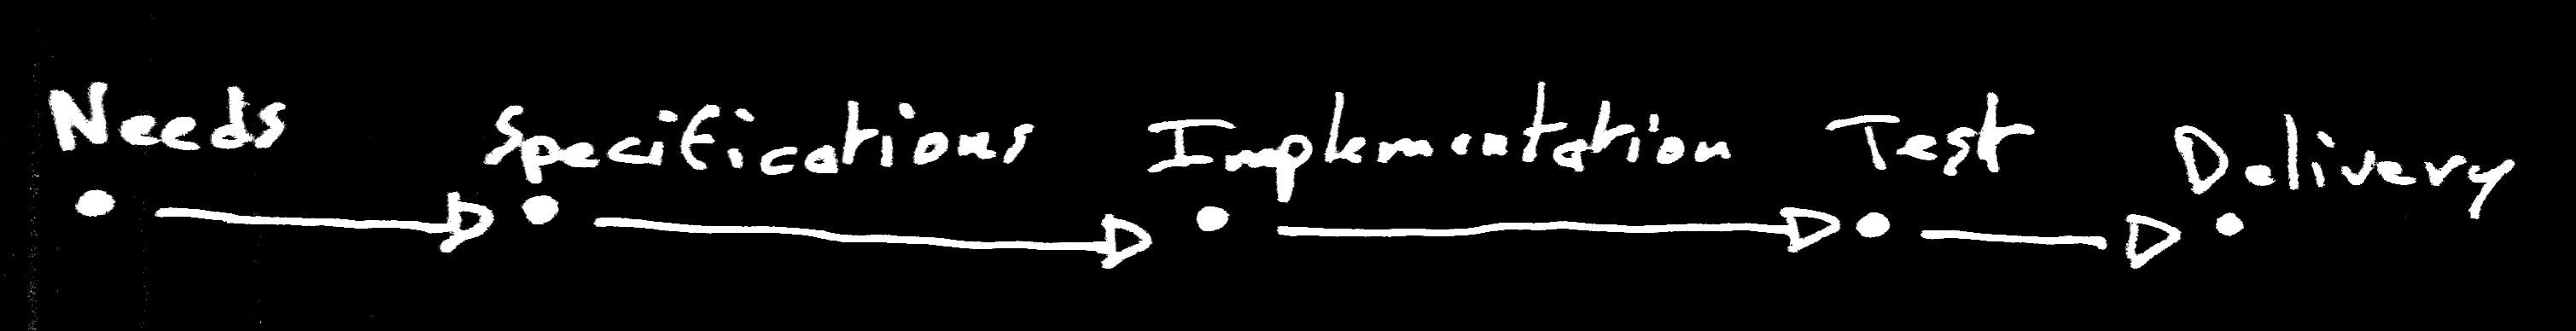 Needs Specifications Implementation Test Delivery